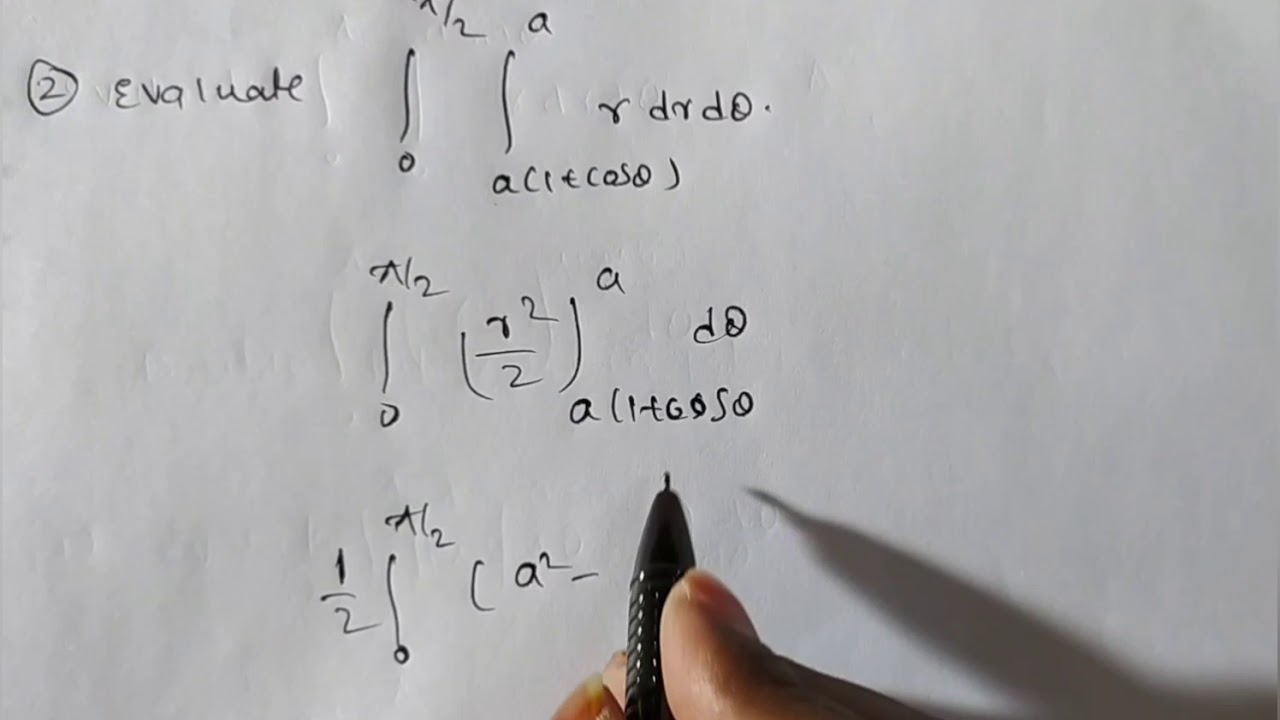 ② Evaluate ∫₀^{π/2} ∫_{a(1+cosθ)}^{a} r dr dθ.
∫₀^{π/2} (r²/2)_{a(1+cosθ}^{a} dθ
1/2 ∫₀^{π/2} ( a² −